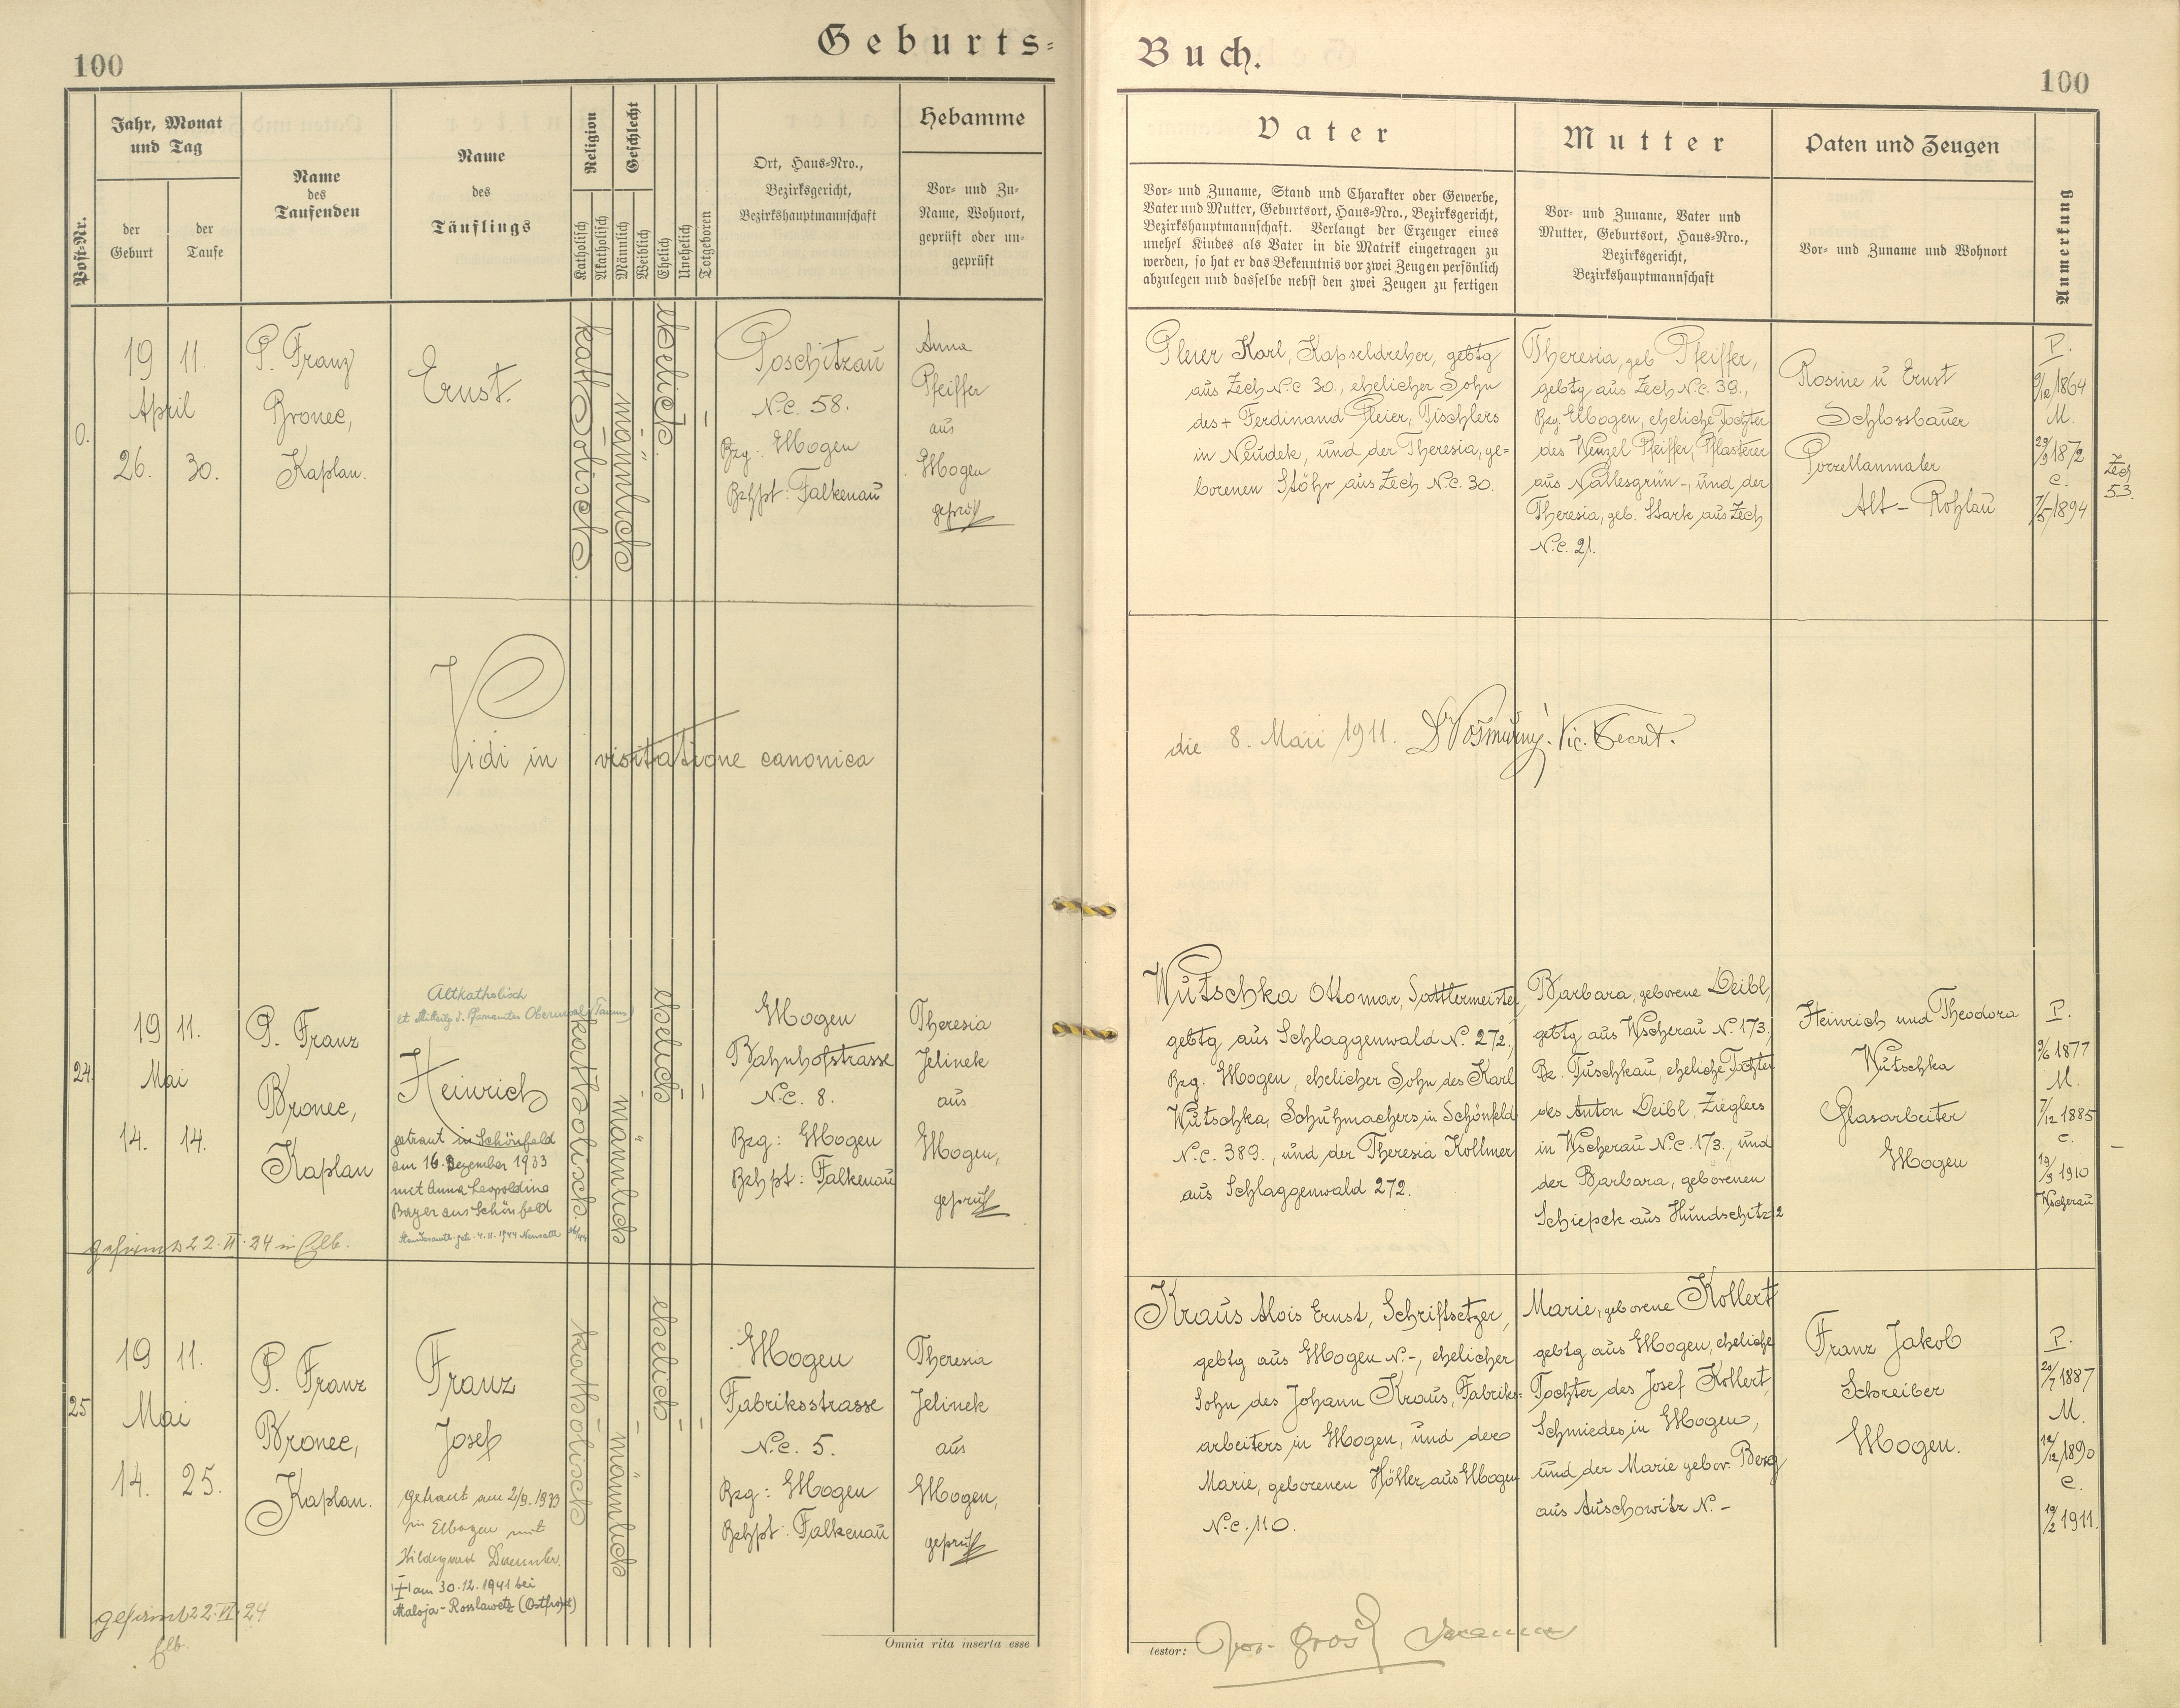 100
Geburts=
Buch.
100
Post-Nr.
Jahr, Monat
und Tag
der
Geburt
der
Taufe
Name
des
Taufenden
Name
des
Täuflings
Religion
Katholisch
Akatholisch
Geschlecht
Männlich
Weiblich
Ehelich
Unehelich
Totgeboren
Ort, Haus-Nro.,
Bezirksgericht,
Bezirkshauptmannschaft
Hebamme
Vor- und Zu-
Name, Wohnort,
geprüft oder un-
geprüft
Vater
Vor- und Zuname, Stand und Charakter oder Gewerbe,
Vater und Mutter, Geburtsort, Haus-Nro., Bezirksgericht,
Bezirkshauptmannschaft. Verlangt der Erzeuger eines
unehel Kindes als Vater in die Matrik eingetragen zu
werden, so hat er das Bekenntnis vor zwei Zeugen persönlich
abzulegen und dasselbe nebst den zwei Zeugen zu fertigen
Mutter
Vor- und Zuname, Vater und
Mutter, Geburtsort, Haus-Nro.,
Bezirksgericht,
Bezirkshauptmannschaft
Paten und Zeugen
Vor- und Zuname und Wohnort
Anmerkung
0.
19 11.
April
26. 30.
P. Franz
Bronec,
Kaplan.
Ernst.
katholisch.
männlich
ehelich.
Poschitzau
N.C. 58.
Bzg: Elbogen
Bzhpt: Falkenau
Anna
Pfeiffer
aus
Elbogen
geprüft
Pleier Karl, Kapseldreher, gebtg
aus Zech N.C 30., ehelicher Sohn
des + Ferdinand Pleier, Tischlers
in Neudek, und der Theresia, ge=
borenen Stöhr aus Zech N.C. 30.
Theresia, geb Pfeiffer,
gebtg aus Zech N.C. 39.,
Bzg. Elbogen, eheliche Tochter
des Wenzel Pfeiffer, Pflasterer
aus Nallesgrün -, und der
Theresia, geb. Stark aus Zech
N.C. 21.
Rosine u Ernst
Schlossbauer
Porzellanmaler
Alt - Rohlau
P.
9/12 1864
M.
29/3 1872
C.
7/5 1894
Z
Zech
53.
Vidi in visitatione canonica
die 8. Maii 1911. Vic. Secret.
24.
19 11.
Mai
14. 14.
P. Franz
Bronec,
Kaplan
Altkatholisch
Heinrich
getraut in Schönfeld
am 16. Dezember 1933
mit Anna Leopoldine
Bayer aus Schönfeld
gefirmt 22.VI.24 in Elb.
katholisch.
männlich
ehelich
Elbogen
Bahnhofstrasse
N.C. 8.
Bzg: Elbogen
Bzhpt: Falkenau
Theresia
Jelinek
aus
Elbogen,
geprüft
Wutschka Ottomar, Sattlermeister,
gebtg aus Schlaggenwald N. 272.,
Bzg. Elbogen, ehelicher Sohn des Karl
Wutschka, Schuhmachers, in Schönfeld
N.C. 389., und der Theresia Kollmer
aus Schlaggenwald 272.
Barbara, geborene Deibl,
gebtg aus Wscherau N. 173.,
Bz. Tuschkau, eheliche Tochter
des Anton Deibl, Zieglers
in Wscherau N.C. 173., und
der Barbara, geborenen
Schiepek aus Hundschitz 2
Heinrich und Theodora
Wutschka
Glasarbeiter
Elbogen
P.
9/6 1877
M.
7/12 1885
C.
19/3 1910
Wscherau
25
19 11.
Mai
14. 25.
P. Franz
Bronec,
Kaplan.
Franz
Josef
getraut am 2/9. 1939
in Elbogen mit
Hildegard
am 30.12.1941 bei
Maloja-Rosslawetz (Ostfront)
gefirmt 22.VI.24
Elb.
katholisch
männlich
ehelich
Elbogen
Fabriksstrasse
N.C. 5.
Bzg: Elbogen
Bzhpt: Falkenau
Theresia
Jelinek
aus
Elbogen,
geprüft
Kraus Alois Ernst, Schriftsetzer,
gebtg aus Elbogen N.-, ehelicher
Sohn des Johann Kraus, Fabriks=
arbeiters in Elbogen, und der
Marie, geborenen Höller aus Elbogen
N.C. 110.
Marie, geborene Kollert
gebtg aus Elbogen, eheliche
Tochter des Josef Kollert,
Schmiedes, in Elbogen,
und der Marie gebor. Berg
aus Auschowitz N. -
Franz Jakob
Schreiber
Elbogen.
P.
20/7 1887
M.
12/12 1890
C.
19/2 1911.
Omnia rita inserta esse
testor: